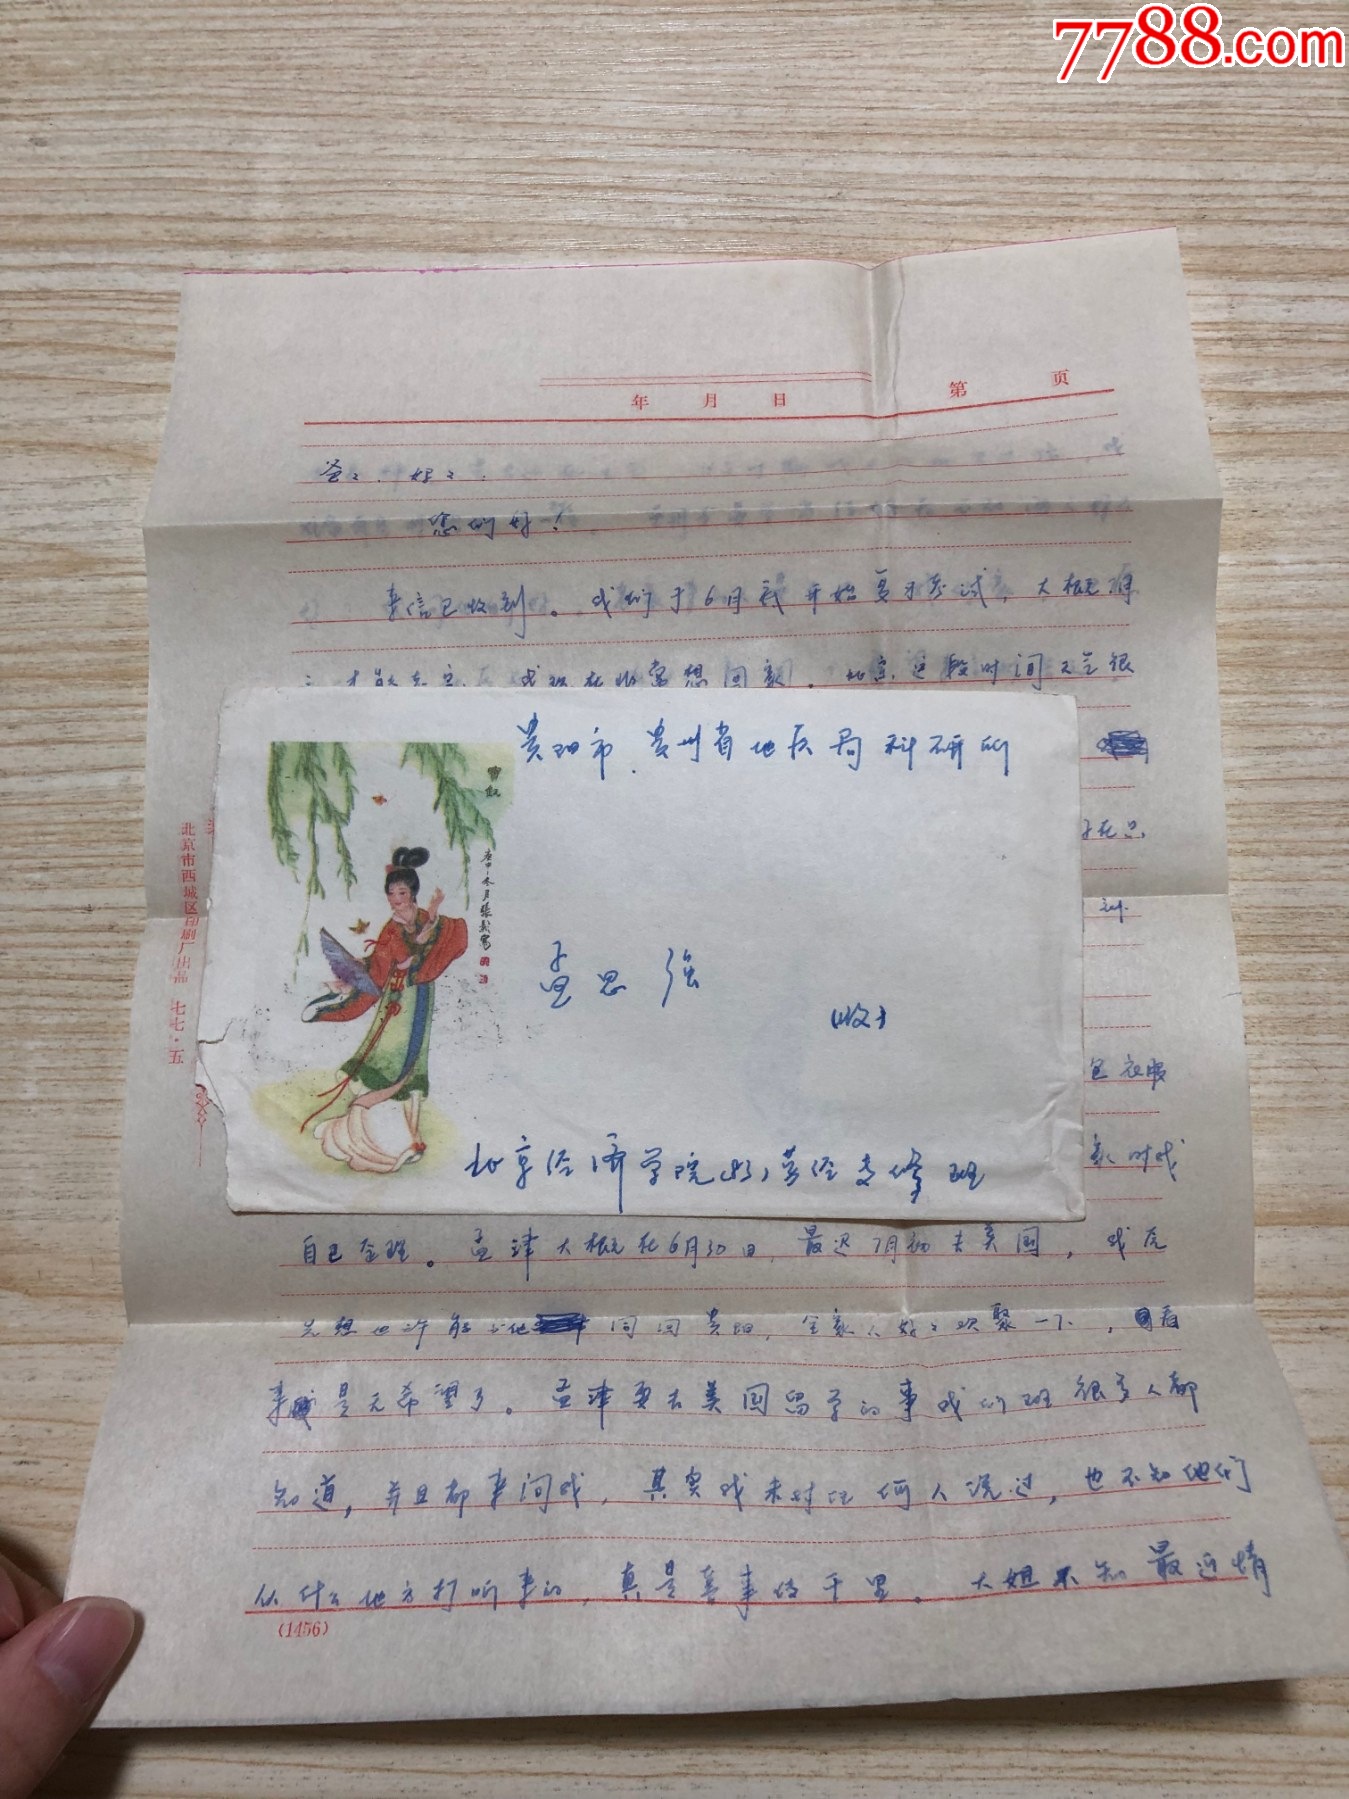 7788.com
年 月 日 第 页
爸々、妈々:
您们好!
来信已收到。我们于6月 开始复习考试,大概
我现在非常想回家。北京这段时间天气很
贵阳市.贵州省地质局科研所
孟思强
(收)
北京经济学院 进修班
曹淦
庚申冬月
北京市西城区印刷厂出品 七七·五
包衣服
家时我
自己整理。孟津大概在6月30日,最迟7月初去美国,我原
先想也许能与他 同回贵阳,全家人好々欢聚一下,看
来是无希望了。孟津要去美国留学的事我们班很多人都
知道,并且都来问我,其实我未对任何人说过,也不知他们
从什么地方打听来的,真是喜事传千里。大姐不知最近情
(1456)